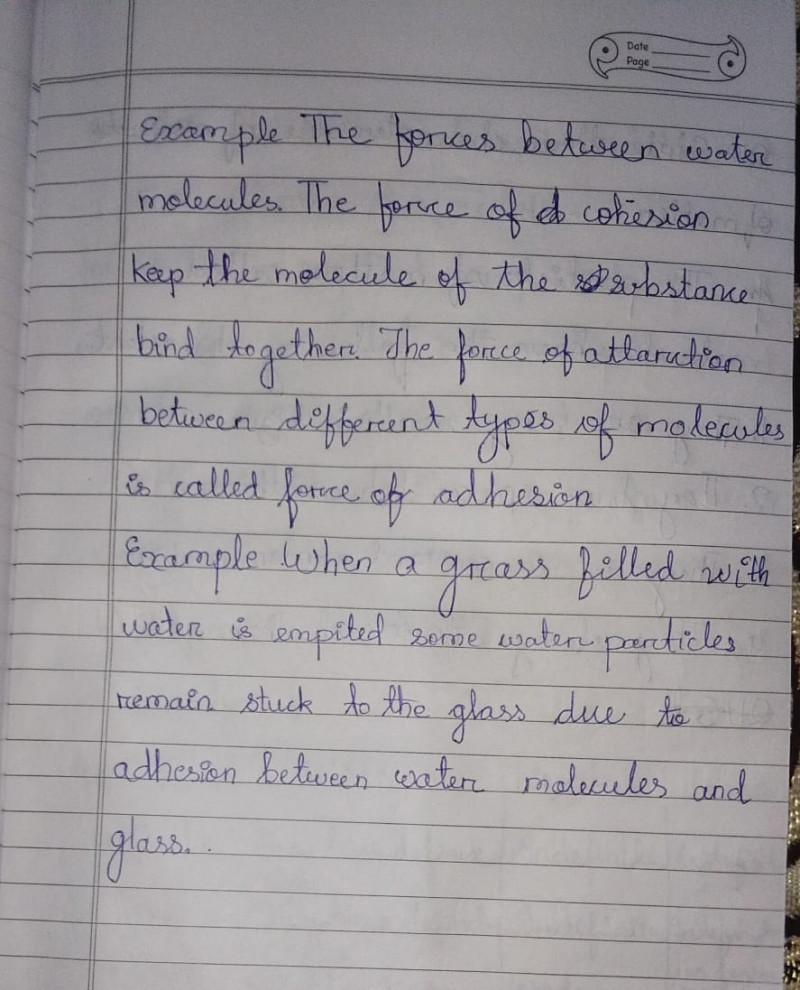 Date
Page
Example The forces between water
molecules. The force of cohesion
keep the molecule of the substance
bind together. The force of attarution
between different types of molecules
is called force of adhesion
Example When a grass filled with
water is empited some water particles
remain stuck to the glass due to
adhesion between water molecules and
glass..